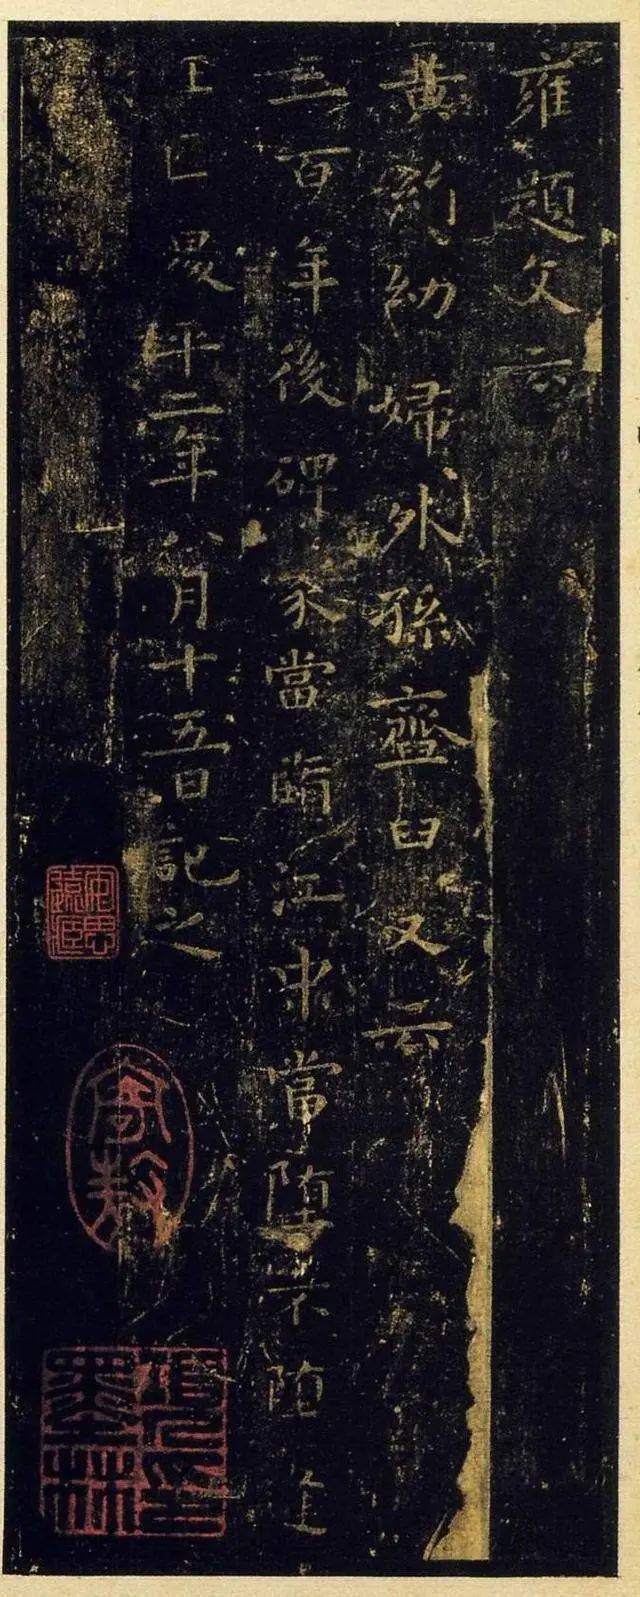 雍題文云
黃絹幼婦外孫齏臼又云
三百年後碑冢當墮江中當墮不墮逢
王叵昇平二年八月十五日記之
安思遠藏